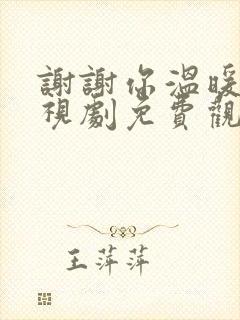 謝謝你溫暖
視劇免費觀
王萍萍